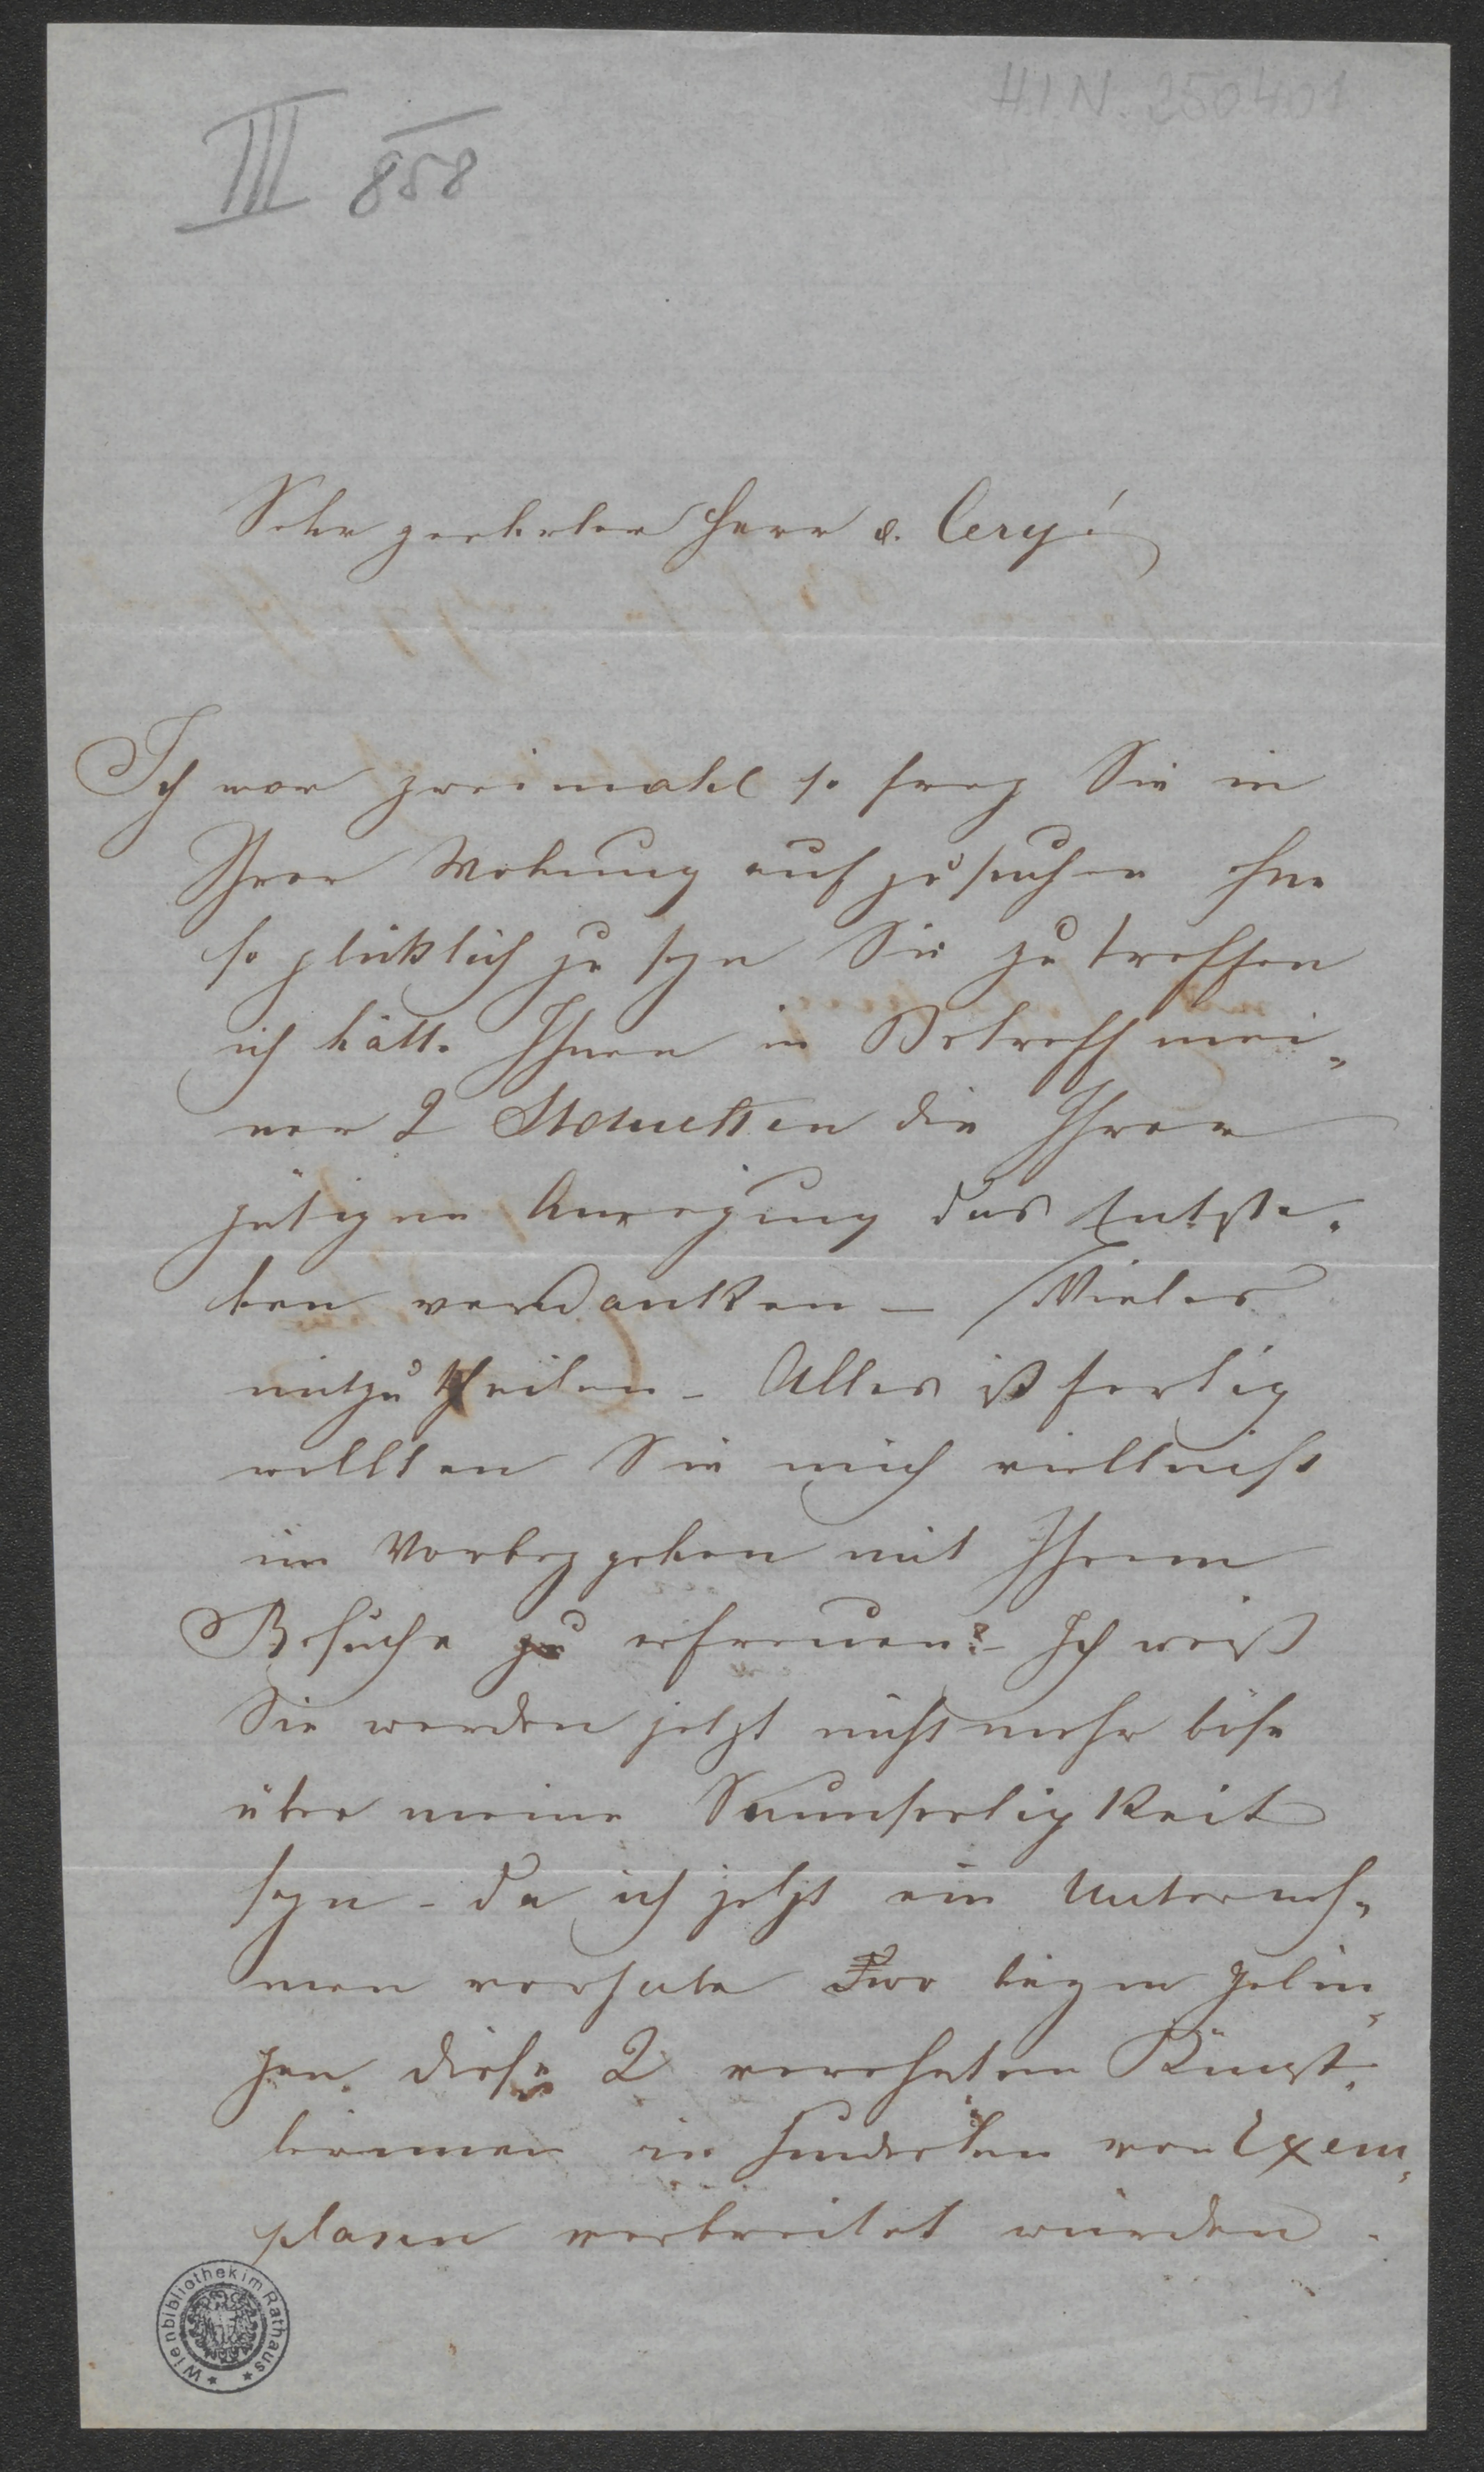 H.I.N. 250401
III 858
Sehr geehrter Herr v. Cerri!
Ich war zweimahl so frey Sie in
Ihrer Wohnung aufzusuchen ohne
so glüklich zu seyn Sie zu treffen
ich hätte Ihnen in Betreff mei„
ner 2 Statuetten die Ihrer
gütigen Anregung das Entste„
hen verdanken – Vieles
mitzutheilen – Alles ist fertig
wollten Sie mich vielleicht
im Vorbeygehen mit Ihrem
Besuche zu erfreuen? – Ich weiß
Sie werden jetzt nicht mehr böse
über meine Saumseligkeit
seyn – da ich jetzt ein Unterneh„
men vorhabe gelin„
gen diese 2 verehrten Künst„
lerinnen in Hunderten von Exem„
plaren verbreitet würden.
Wienbibliothek im Rathaus